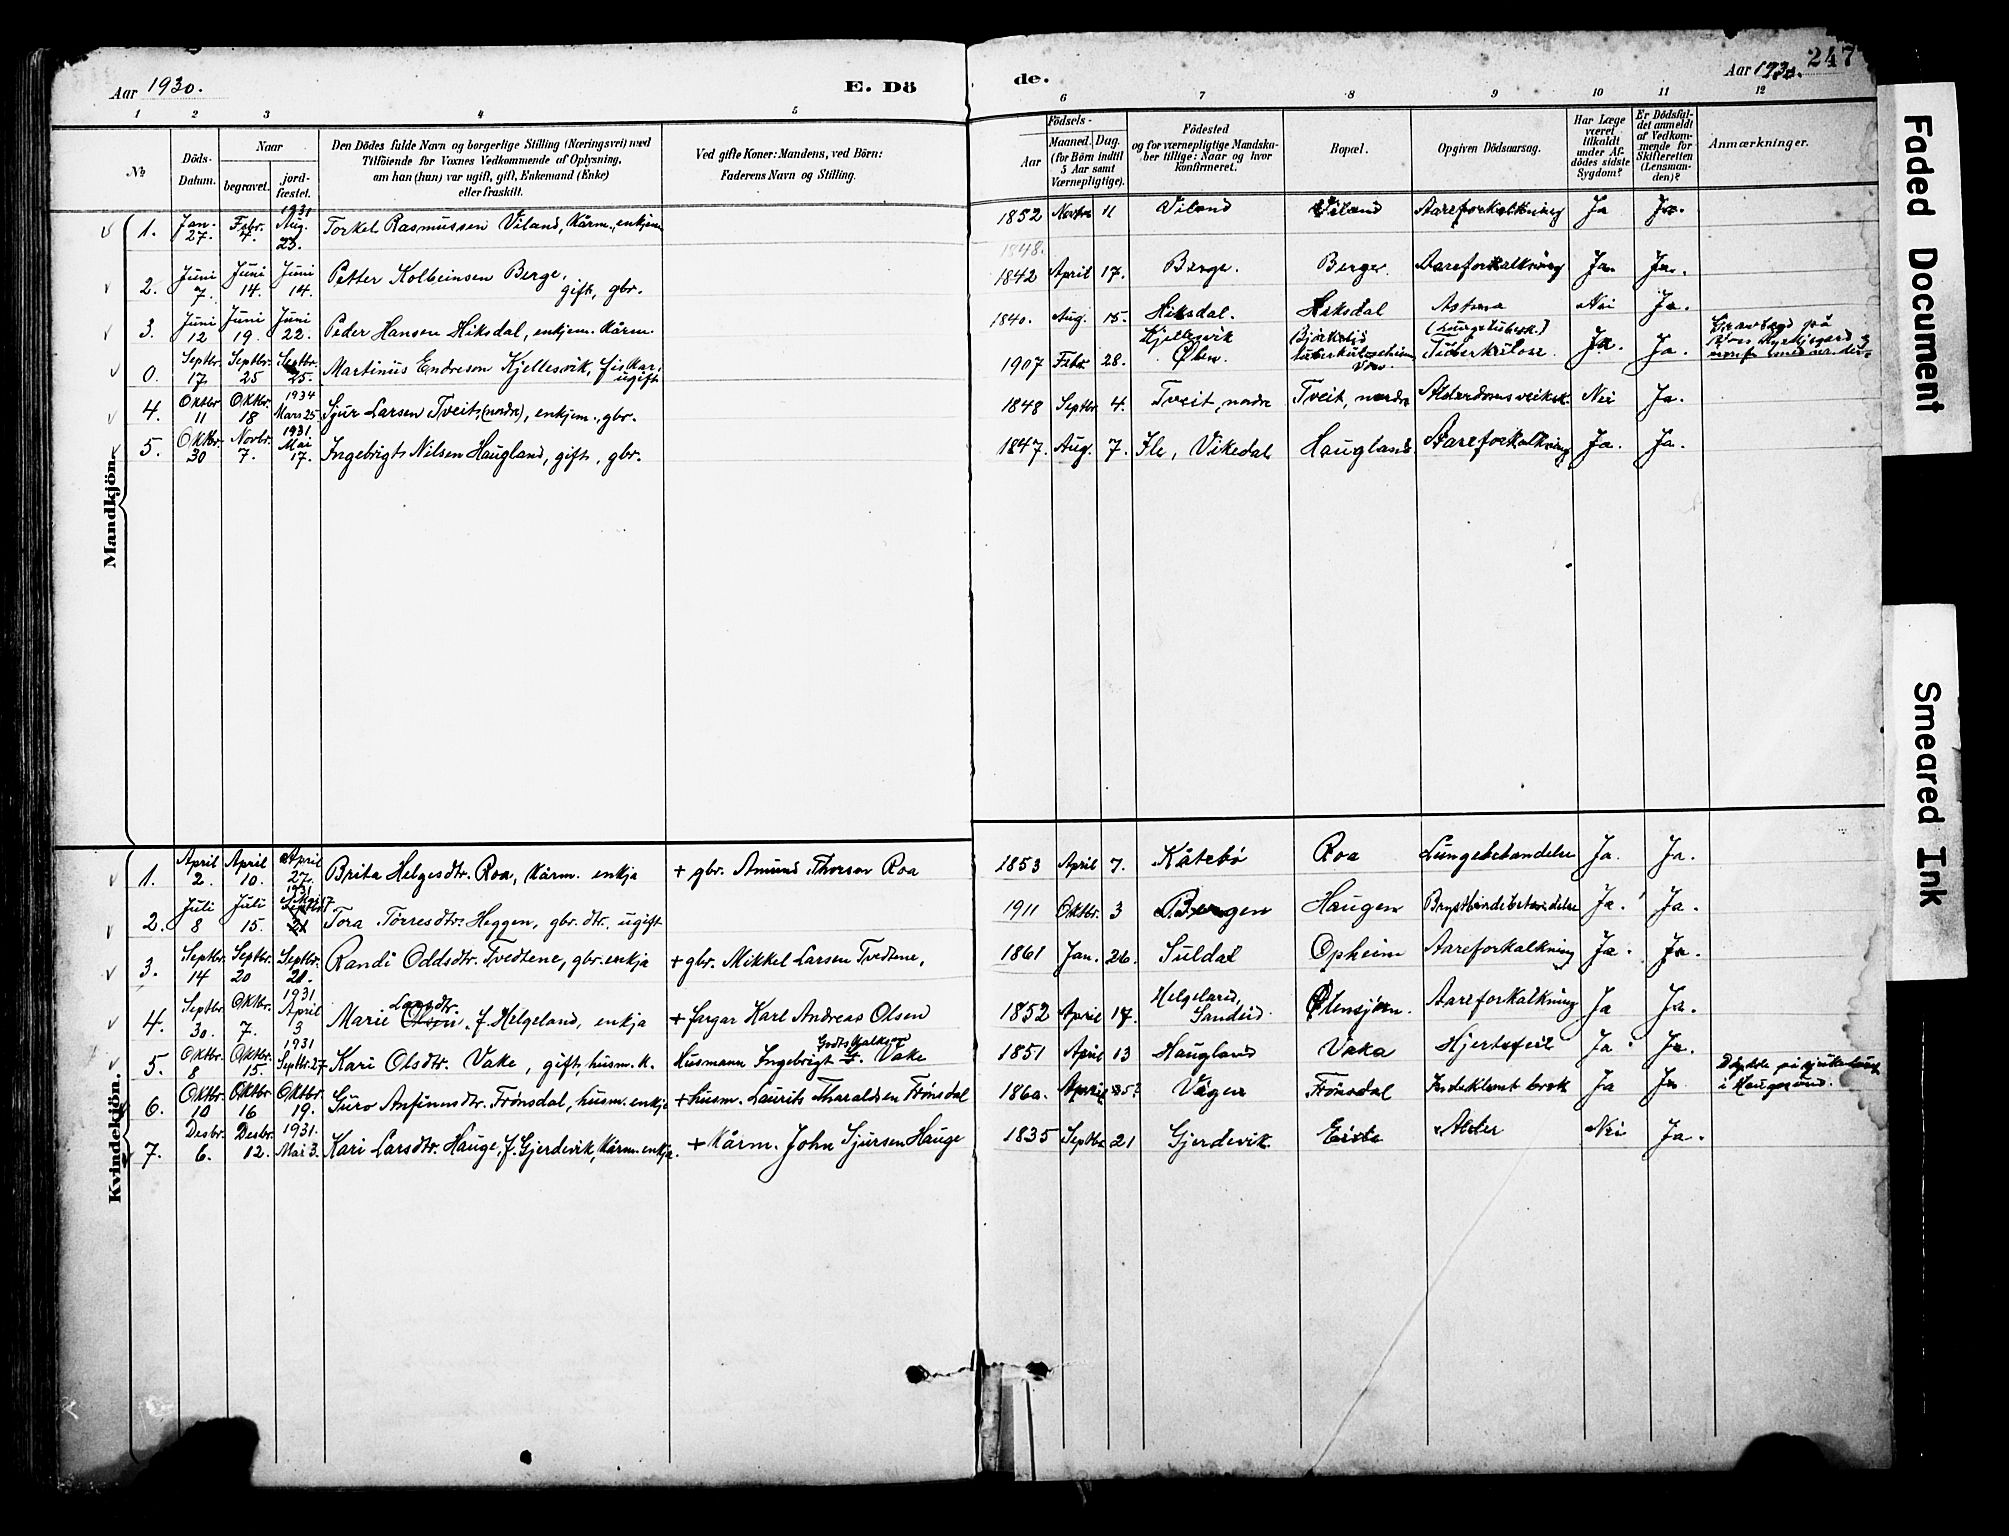 Aar 1930. E. Dö
de. Aar 1930. 247
1 2 3 4 5 6 7 8 9 10 11 12
No Döds-Datum. Naar begravet. jordfæstet. Den Dödes fulde Navn og borgerlige Stilling (Næringsvei) med Tilföiende for Voxnes Vedkommende af Oplysning, om han (hun) var ugift, gift, Enkemand (Enke) eller fraskilt. Ved gifte Koner: Mandens, ved Börn: Faderens Navn og Stilling.
Födsels- Aar Maaned. Dag. (for Börn indtil 5 Aar samt Værnepligtige). Födested og for værnepligtige Mandskaber tillige: Naar og hvor konfirmeret. Bopæl. Opgiven Dödsaarsag. Har Læge været tilkaldt under Afdödes sidste Sygdom? Er Dödsfaldet anmeldt af Vedkommende for Skifteretten (Lensmanden)? Anmærkninger.
Mandkjön.
1. Jan. 27. Febr. 4. 1931 Aug. 23. Torkel Rasmussen Viland, kårm., enkjem 1852 Novbr. 11 Viland Viland Aareforkalkning Ja Ja.
1848.
2. Juni 7. Juni 14. Juni 14. Petter Kolbeinsen Berge, gift, gbr. 1842 April 17. Berge. Berge. Aareforkalkning Ja. Ja.
3. Juni 12 Juni 19. Juni 22. Peder Hansen Hiksdal, enkjem. kårm. 1840. Aug. 15. Hiksdal. Hiksdal Astma Nei Ja.
0. Septbr. 17. Septbr. 25 Septbr. 25. Martinus Endreson Kjellesvik, fiskar, ugift 1907 Febr. 28. Kjellesvik Ølen. (Lungetuberk.) Tuberkulose. Ja. Ja.
4. Oktbr. 11 Oktbr. 18 1934 Mars 25 Sjur Larsen Tveit (nordre), enkjem., gbr. 1848 Septbr. 4. Tveit, nordre Tveit, nordre Alderdomsveiksk. Nei Ja.
5. Oktbr. 30 Novbr. 7. 1931 Mai 17. Ingebrigt Nilsen Haugland, gift, gbr. 1847. Aug. 7. Ile, Vikedal Haugland. Aareforkalkning Ja. Ja.
Kvindekjön.
1. April 2. April 10. April 27. Brita Helgesdtr. Roa, kårm. enkja + gbr. Amund Thorsen Roa 1853 April 7. Kåtebø Roa Lungebetændelse Ja. Ja.
2. Juli 8 Juli 15. 1931 Mai 17 Tora Torresdtr. Heggen, gbr. dtr. ugift 1911 Oktbr. 3 Bergen Haugen Brysthindebetændelse Ja. Ja.
3. Septbr. 14 Septbr. 20 Septbr. 21. Randi Oddsdtr. Tvedtene, gbr. enkja + gbr. Mikkel Larsen Tvedtene, 1861 Jan. 26. Suldal Opheim Aareforkalkning Ja. Ja.
4. Septbr. 30. Oktbr. 7. 1931 April 3 Marie Larsdtr. Olsen. f. Helgeland, enkja + fargar Karl Andreas Olsen 1852 April 17. Helgeland, Sandeid. Ølensjøen. Aareforkalkning Ja Ja.
5. Oktbr. 8 Oktbr. 15. 1931 Septbr. 27 Kari Olsdtr. Vake, gift, husm. k. Husmann Ingebrigt Vake 1851 April 13 Haugland Vaka Hjertefeil Ja Ja.
6. Oktbr. 10 Oktbr. 16 Oktbr. 19. Guro Anfinnsdtr. Frønsdal, husm. enkje + husm. Laurits Tharaldsen Frønsdal 1860. April 25? Vågen Frønsdal Indeklemt brok Ja Ja Døydde på sjukehus i Haugesund.
7. Desbr. 6. Desbr. 12. 1931. Mai 3. Kari Larsdtr. Hauge, f. Gjerdevik, kårm. enkja. + kårm. John Sjursen Hauge 1835 Septbr. 21 Gjerdevik Alder Nei Ja.
Faded Document
Smeared Ink